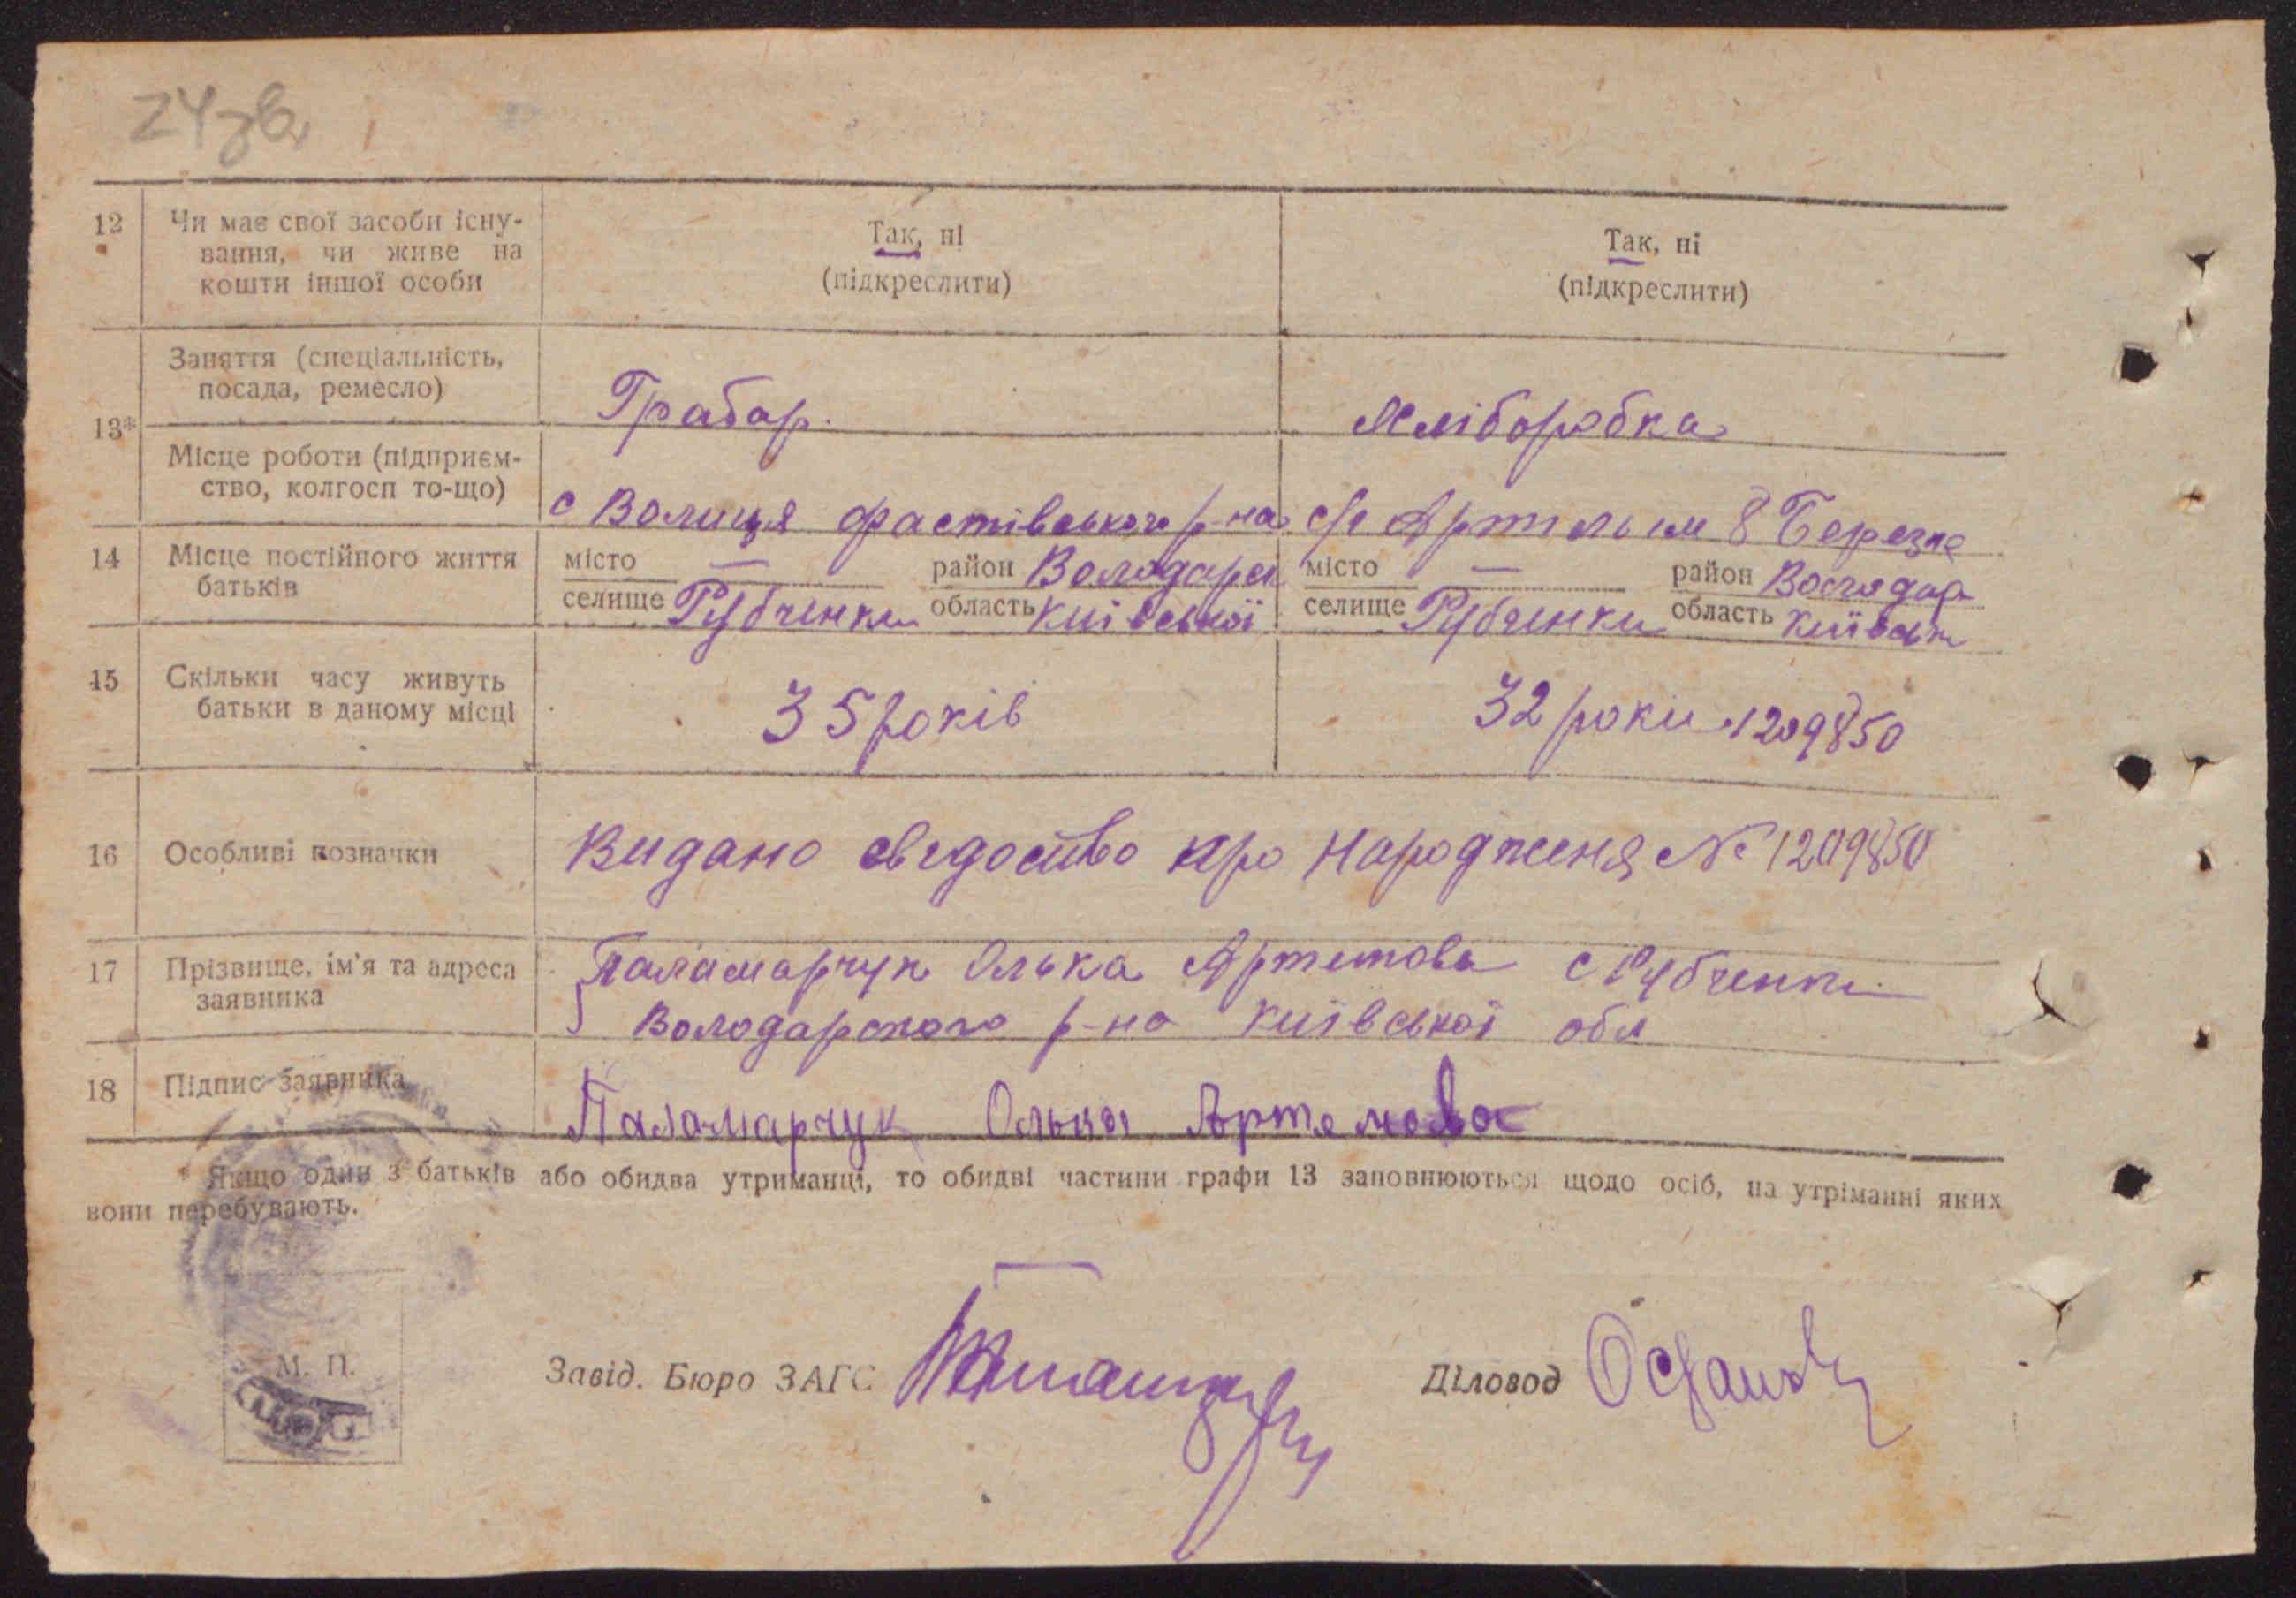 24зв
12
Чи має свої засоби існу-
вання, чи живе на
кошти іншої особи
Так, ні
(підкреслити)
Так, ні
(підкреслити)
13*
Заняття (спеціальність,
посада, ремесло)
Грабар.
Хліборобка
Місце роботи (підприєм-
ство, колгосп то-що)
с Волиця фастівського р-на
с/г Артіль ім 8 Березне
14
Місце постійного життя
батьків
місто — район Володарск
селище Рубченки область Київської
місто — район Володар
селище Рубченки область Київськ
15
Скільки часу живуть
батьки в даному місці
35 років
32 роки 1209850
16
Особливі позначки
Видано сведоство про народженя № 1209850
17
Прізвище, ім'я та адреса
заявника
Паламарчук Олька Артемова с Рубченки
Володарского р-на Київської обл
18
Підпис заявника
Паламарчук Ольга Артемова
* Якщо один з батьків або обидва утриманці, то обидві частини графи 13 заповнюються щодо осіб, на утріманні яких
вони перебувають.
М. П.
Завід. Бюро ЗАГС
Діловод